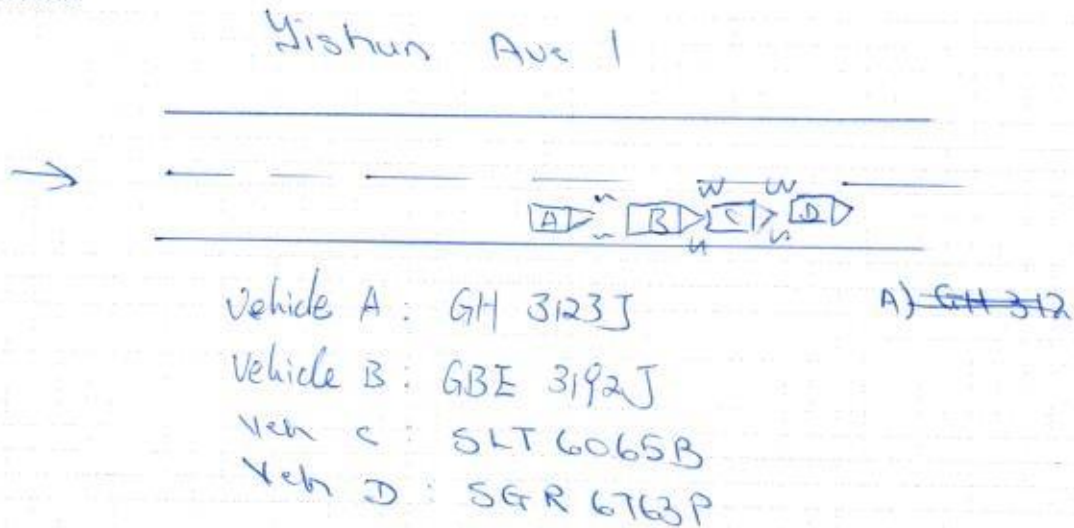 Yishun Ave 1
A B C D
Vehicle A : GH 3123J
A) GH 312
Vehicle B : GBE 3192J
Veh C : SLT 6065B
Veh D : SGR 6763P